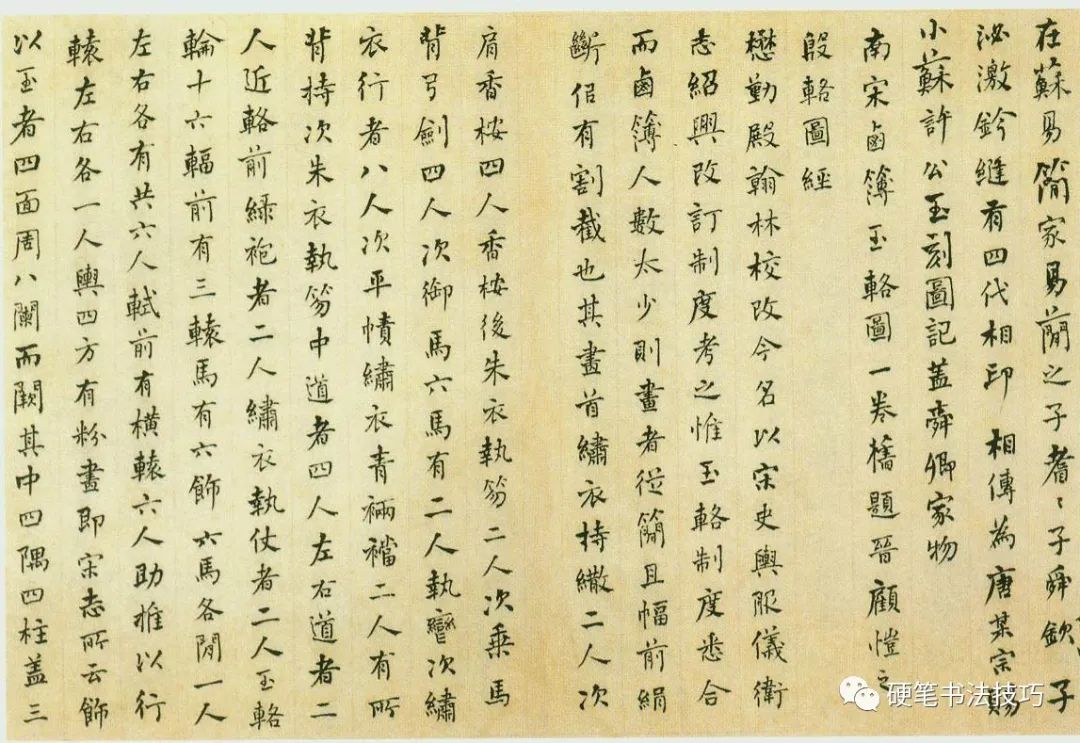 在蘇易簡家易簡之子耆〻子舜欽子
泌激鈐縫有四代相印 相傳為唐某宗賜
小蘇許公玉刻圖記蓋舜卿家物
南宋鹵簿玉輅圖一卷橋題晉顧愷之
殷輅圖經
懋勤殿翰林校改今名以宋史輿服儀衛
志紹興改訂制度考之惟玉輅制度悉合
而鹵簿人數太少則畫者從簡且幅前絹
斷佀有割截也其畫首繡衣持繖二人次
肩香桉四人香桉後朱衣執笏二人次乗馬
背弓劍四人次御馬六馬有二人執轡次繡
衣行者八人次平幘繡衣青裲襠二人有所
背持次朱衣執笏中道者四人左右道者二
人近輅前緑袍者二人繡衣執仗者二人玉輅
輪十六輻前有三轅馬有六飾六馬各閒一人
左右各有共六人軾前有橫轅六人助推以行
轅左右各一人輿四方有粉畫即宋志所云飾
以玉者四面周八闌而闕其中四隅四柱蓋三
硬笔书法技巧